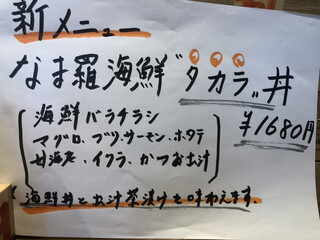 新メニュー
なま羅海鮮"タカラ"丼
海鮮バラチラシ
マグロ、ブリ、サーモン、ホタテ
甘海老、イクラ、かつお出汁
¥1680円
海鮮丼と出汁茶漬けを味わえます。